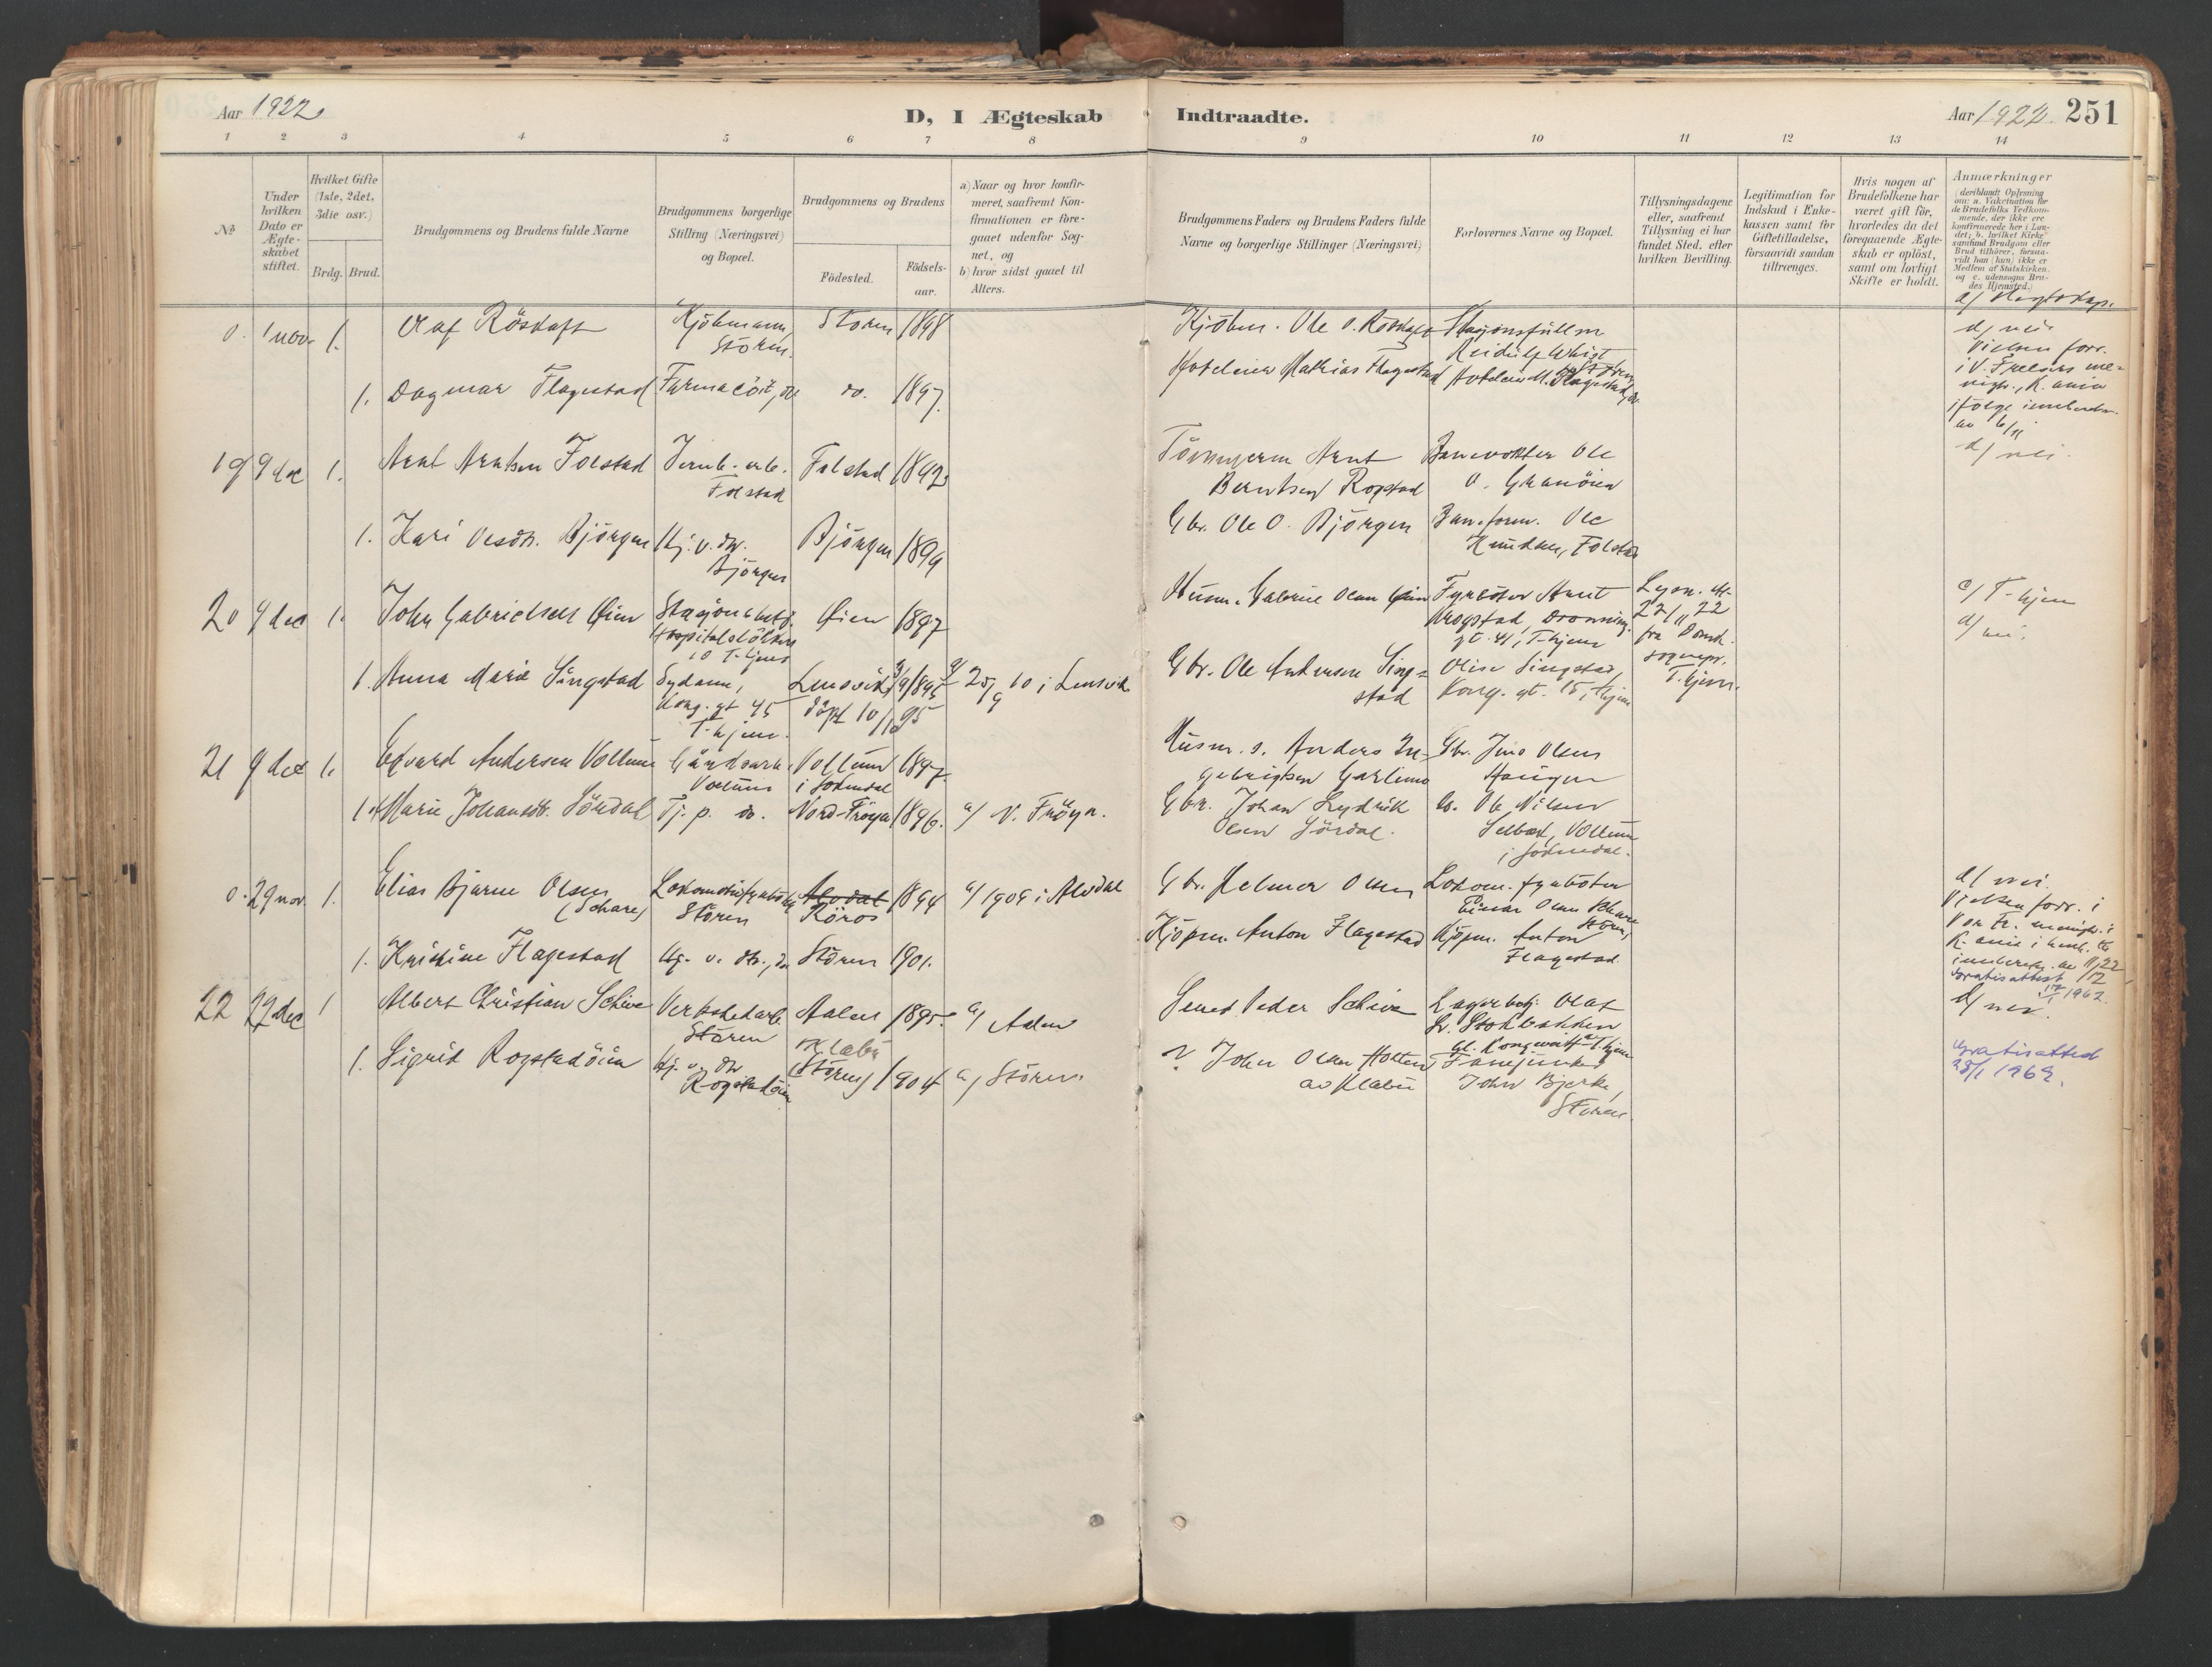 Aar 1922
D, I Ægteskab Indtraadte.
Aar 1922. 251
1 2 3 4 5 6 7 8 9 10 11 12 13 14
№
Under hvilken Dato er Ægteskabet stiftet.
Hvilket Gifte (1ste, 2det, 3die osv.)
Brdg. Brud.
Brudgommens og Brudens fulde Navne
Brudgommens borgerlige Stilling (Næringsvei) og Bopæl.
Brudgommens og Brudens
Födested.
Födsels-aar.
a) Naar og hvor konfirmeret, saafremt Konfirmationen er foregaaet udenfor Sognet, og
b) hvor sidst gaaet til Alters.
Brudgommens Faders og Brudens Faders fulde Navne og borgerlige Stillinger (Næringsvei)
Forlovernes Navne og Bopæl.
Tillysningsdagene eller, saafremt Tillysning ei har fundet Sted, efter hvilken Bevilling.
Legitimation for Indskud i Enkekassen samt for Giftetilladelse, forsaavidt saadan tiltrænges.
Hvis nogen af Brudefolkene har været gift för, hvorledes da det foregaaende Ægteskab er oplöst, samt om lovligt Skifte er holdt.
Anmærkninger (deriblandt Oplysning om: a. Vakcination for de Brudefolks Vedkommende, der ikke ere konfirmerede her i Landet; b. hvilket Kirkesamfund Brudgom eller Brud tilhörer, forsaavidt han (hun) ikke er Medlem af Statskirken, og c. udensogns Brudes Hjemsted.)
0. 1 nov. 1. Olaf Röskaft Kjöbmann, Stören. Stören 1898 Kjöbm. Ole O. Röskaft Stasjonsfullm
d/ nei.
Vielsen forr. i V. Frelsers menigh., K.ania ifölge innberetn. av 6/11
1. Dagmar Flagestad Farmacöit, do do. 1897. Hoteleier Mathias Flagestad Hoteleier M. Flagestad, do.
19 9 dec 1. Arnt Arntsen Folstad Jernb.-arb. Folstad Folstad 1892 Tömmerm Arnt Berntsen Rogstad Banevokter Ole O. Granöien
d/ nei.
1. Kari Olsdtr. Björgen Hj. v. dtr. Björgen Björgen 1899 Gbr. Ole O. Björgen Baneform. Ole Knudsen, Folstad
20 9 dec 1. John Gabrielsen Öien Stasjonsbetj. Hospitalslökken 10 T-hjem Öien 1897 Husm. Gabriel Olsen Öien Fyrböter Arnt Krogstad, Dronning. gt. 41, T-hjem
Lysn. att. 27/11 22 fra Domk. sognepr. T.hjem.
c/ T-hjem
d/ nei.
1. Anna Marie Singstad Sydame, Kong. gt 45 T-hjem. Lensvik 9/9 1895 döpt 10/11 95 a/ 25/9 10 i Lensvik Gbr. Ole Andersen Singstad Olise Singstad, Kong. gt. 15, T.hjem
21 9 dec 1. Edvard Andersen Vollum Gårdsarb. Vollum Vollum i Soknedal 1897. Husm. s. Anders Ingebrigtsen Garlimo Gbr. Jens Olsen Haugen
1. Marie Johansdtr. Sördal Tj. p. do. Nord-Fröya 1896. a/ N. Fröya. Gbr. Johan Lydrik Olsen Sördal. do. Ole Nilsen Selbæk, Vollum i Soknedal.
0. 29 nov. 1. Elias Bjarne Olsen (Schare) Lokomotivfyrböter Stören Alvdal Röros 1894 a/ 1909 i Alvdal Gbr. Helmer Olsen Lokom. fyrböter Einar Olsen Schare Stören,
d/ nei.
Vielsen forr. i Vor Fr. menigh. i K.ania
1. Kristine Flagestad Hj. v. dtr., do Stören 1901. Kjöpm. Anton Flagestad Kjöpm. Anton Flagestad.
22 27 dec 1 Albert Christian Schive Verkstedarb. Stören Aalen 1895. a/ Aalen Peder Schive Lagerbetj. Olaf Stokbakken
Gratisattest 17/1 1962.
d/ nei.
1. Sigrid Rogstadöien Hj. v. dtr Rogstadöien Klæbu (Stören) 1904 a/ Stören. John Olsen Holten av Klæbu Fanejunker John Bjerke, Stören.
Gratisattest 28/1 1969.